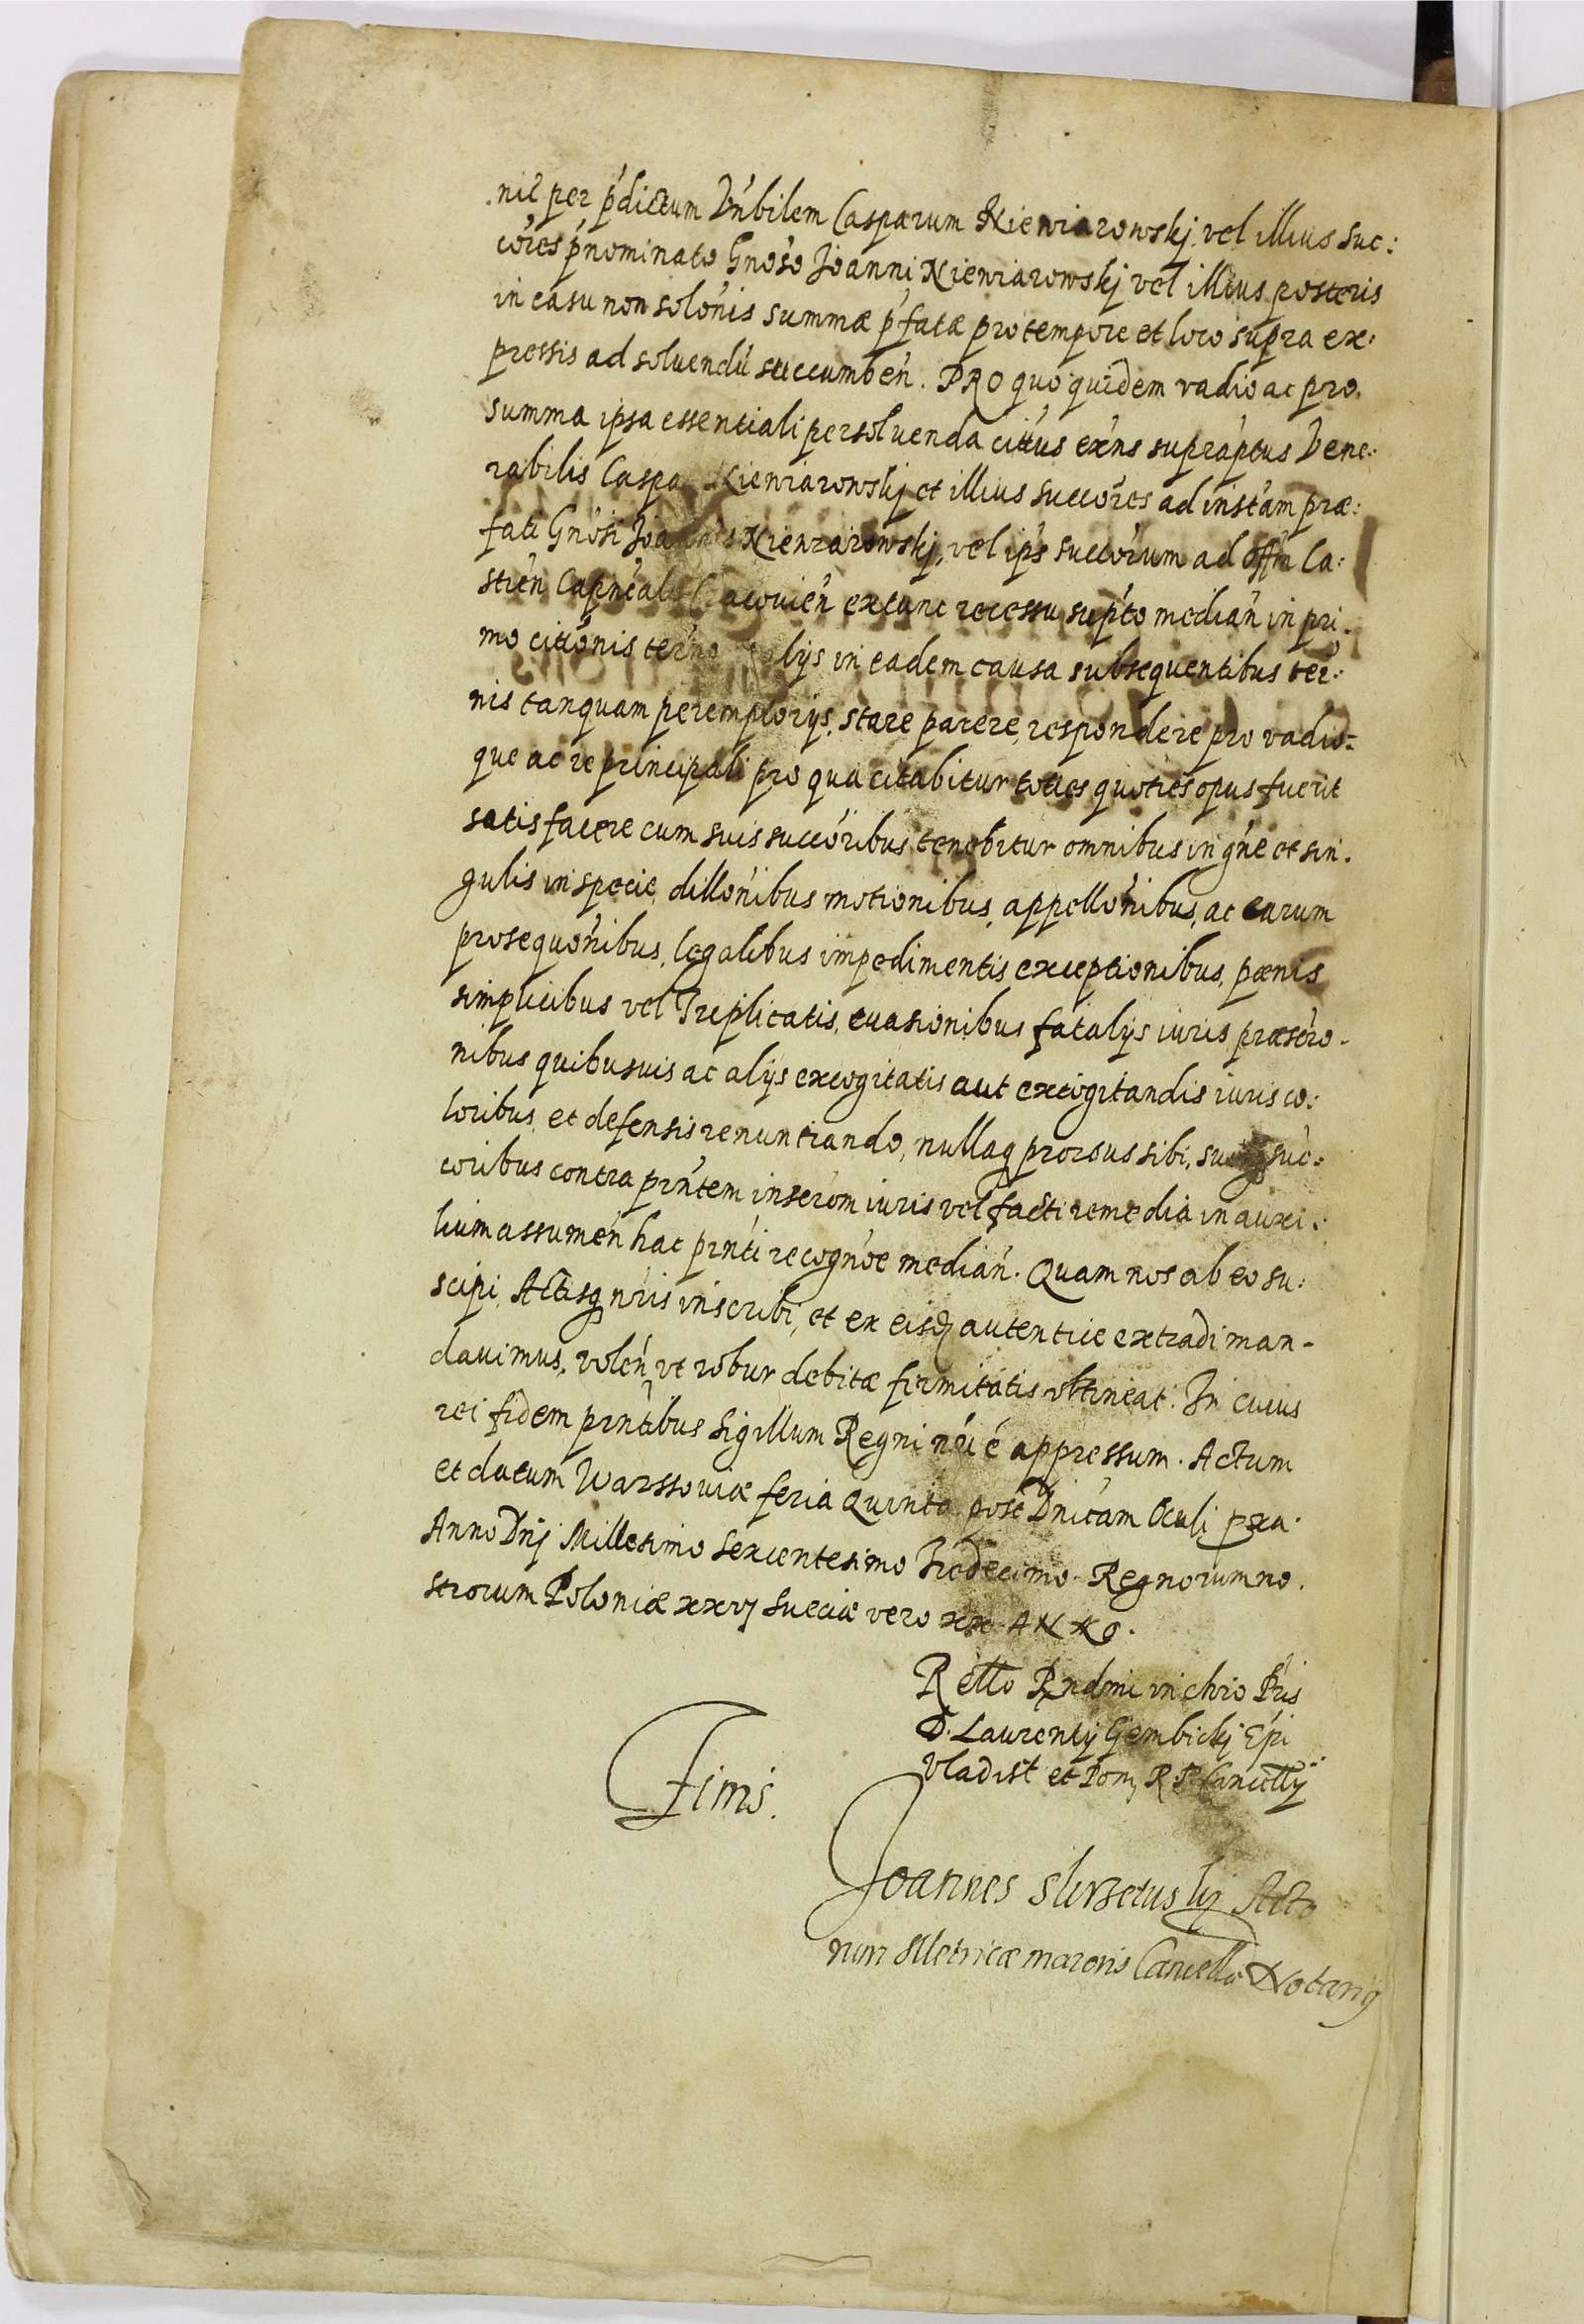 nić per ṕdictum Vńbilem Casparum Niewiarowskj, vel illius suc:
córes ṕnominato Gnóso Joanni Niewiarowskj vel illius posteris
in casu non solónis summæ ṕfatæ pro tempore et loco supra ex:
pressis ad soluendú succumbeń. PRO quo quidem vadio ac pro.
summa ipsa essentiali persoluenda citús exńs supraṕtus Vene:
rabilis Caspa Niewiarowskj et illius succóres ad instám præ:
fati Gnósi Joannis Niewiarowskj, vel ips̃ succórum ad Offm̃ Ca:
streń Capneále Cracouień extunc recessu suṕto mediań in pri.
mo citiónis termo alijs in eadem causa subsequentibus ter:
nis tanquam peremptorijs, stare parere, respondere pro vadio:
que ac re principali pro qua citabitur toties quoties opus fuerit
satisfacere cum suis succóribus tenebitur omnibus in gńe et sin.
gulis in specie, dillónibus motionibus, appellónibus, ac earum
prosequónibus, legalibus impedimentis exceptionibus, pœnis
simplicibus vel Triplicatis, euasionibus fatalijs iuris præscro.
nibus quibusuis ac alijs excogitatis aut excogitandis iuris co:
loribus, et defensis renuntiando, nullaq prorsus sibi, suisq suc:
coribus contra pŕntem inseróm iuris vel facti remedia in auxi:
lium assumeń hac pŕnti recognóe mediań. Quam nos ab eo su:
scipi, Actisq nŕis inscribi, et ex eisdȝ autentice extradi man-
dauimus, voleń vt robur debitæ firmitatis obtineat. In cuius
rei fidem pŕntibus Sigillum Regni nŕi é appressum. Actum
et datum Warssouiæ feria Quinta post Dnicám Oculi pxa.
Anno Dnj Millesimo Sexcentesimo Tredecimo. Regnorum no.
strorum Poloniæ xxvj Sueciæ vero xx ANNO.
Retto Rndmi in chrio Pris
D. Laurentij Gembickj Epi
Vladisl et Pom, R. P. Cancellij
Finis.
Joannes
Acto
rum Metricæ maioris Cancellá Notariꝰ